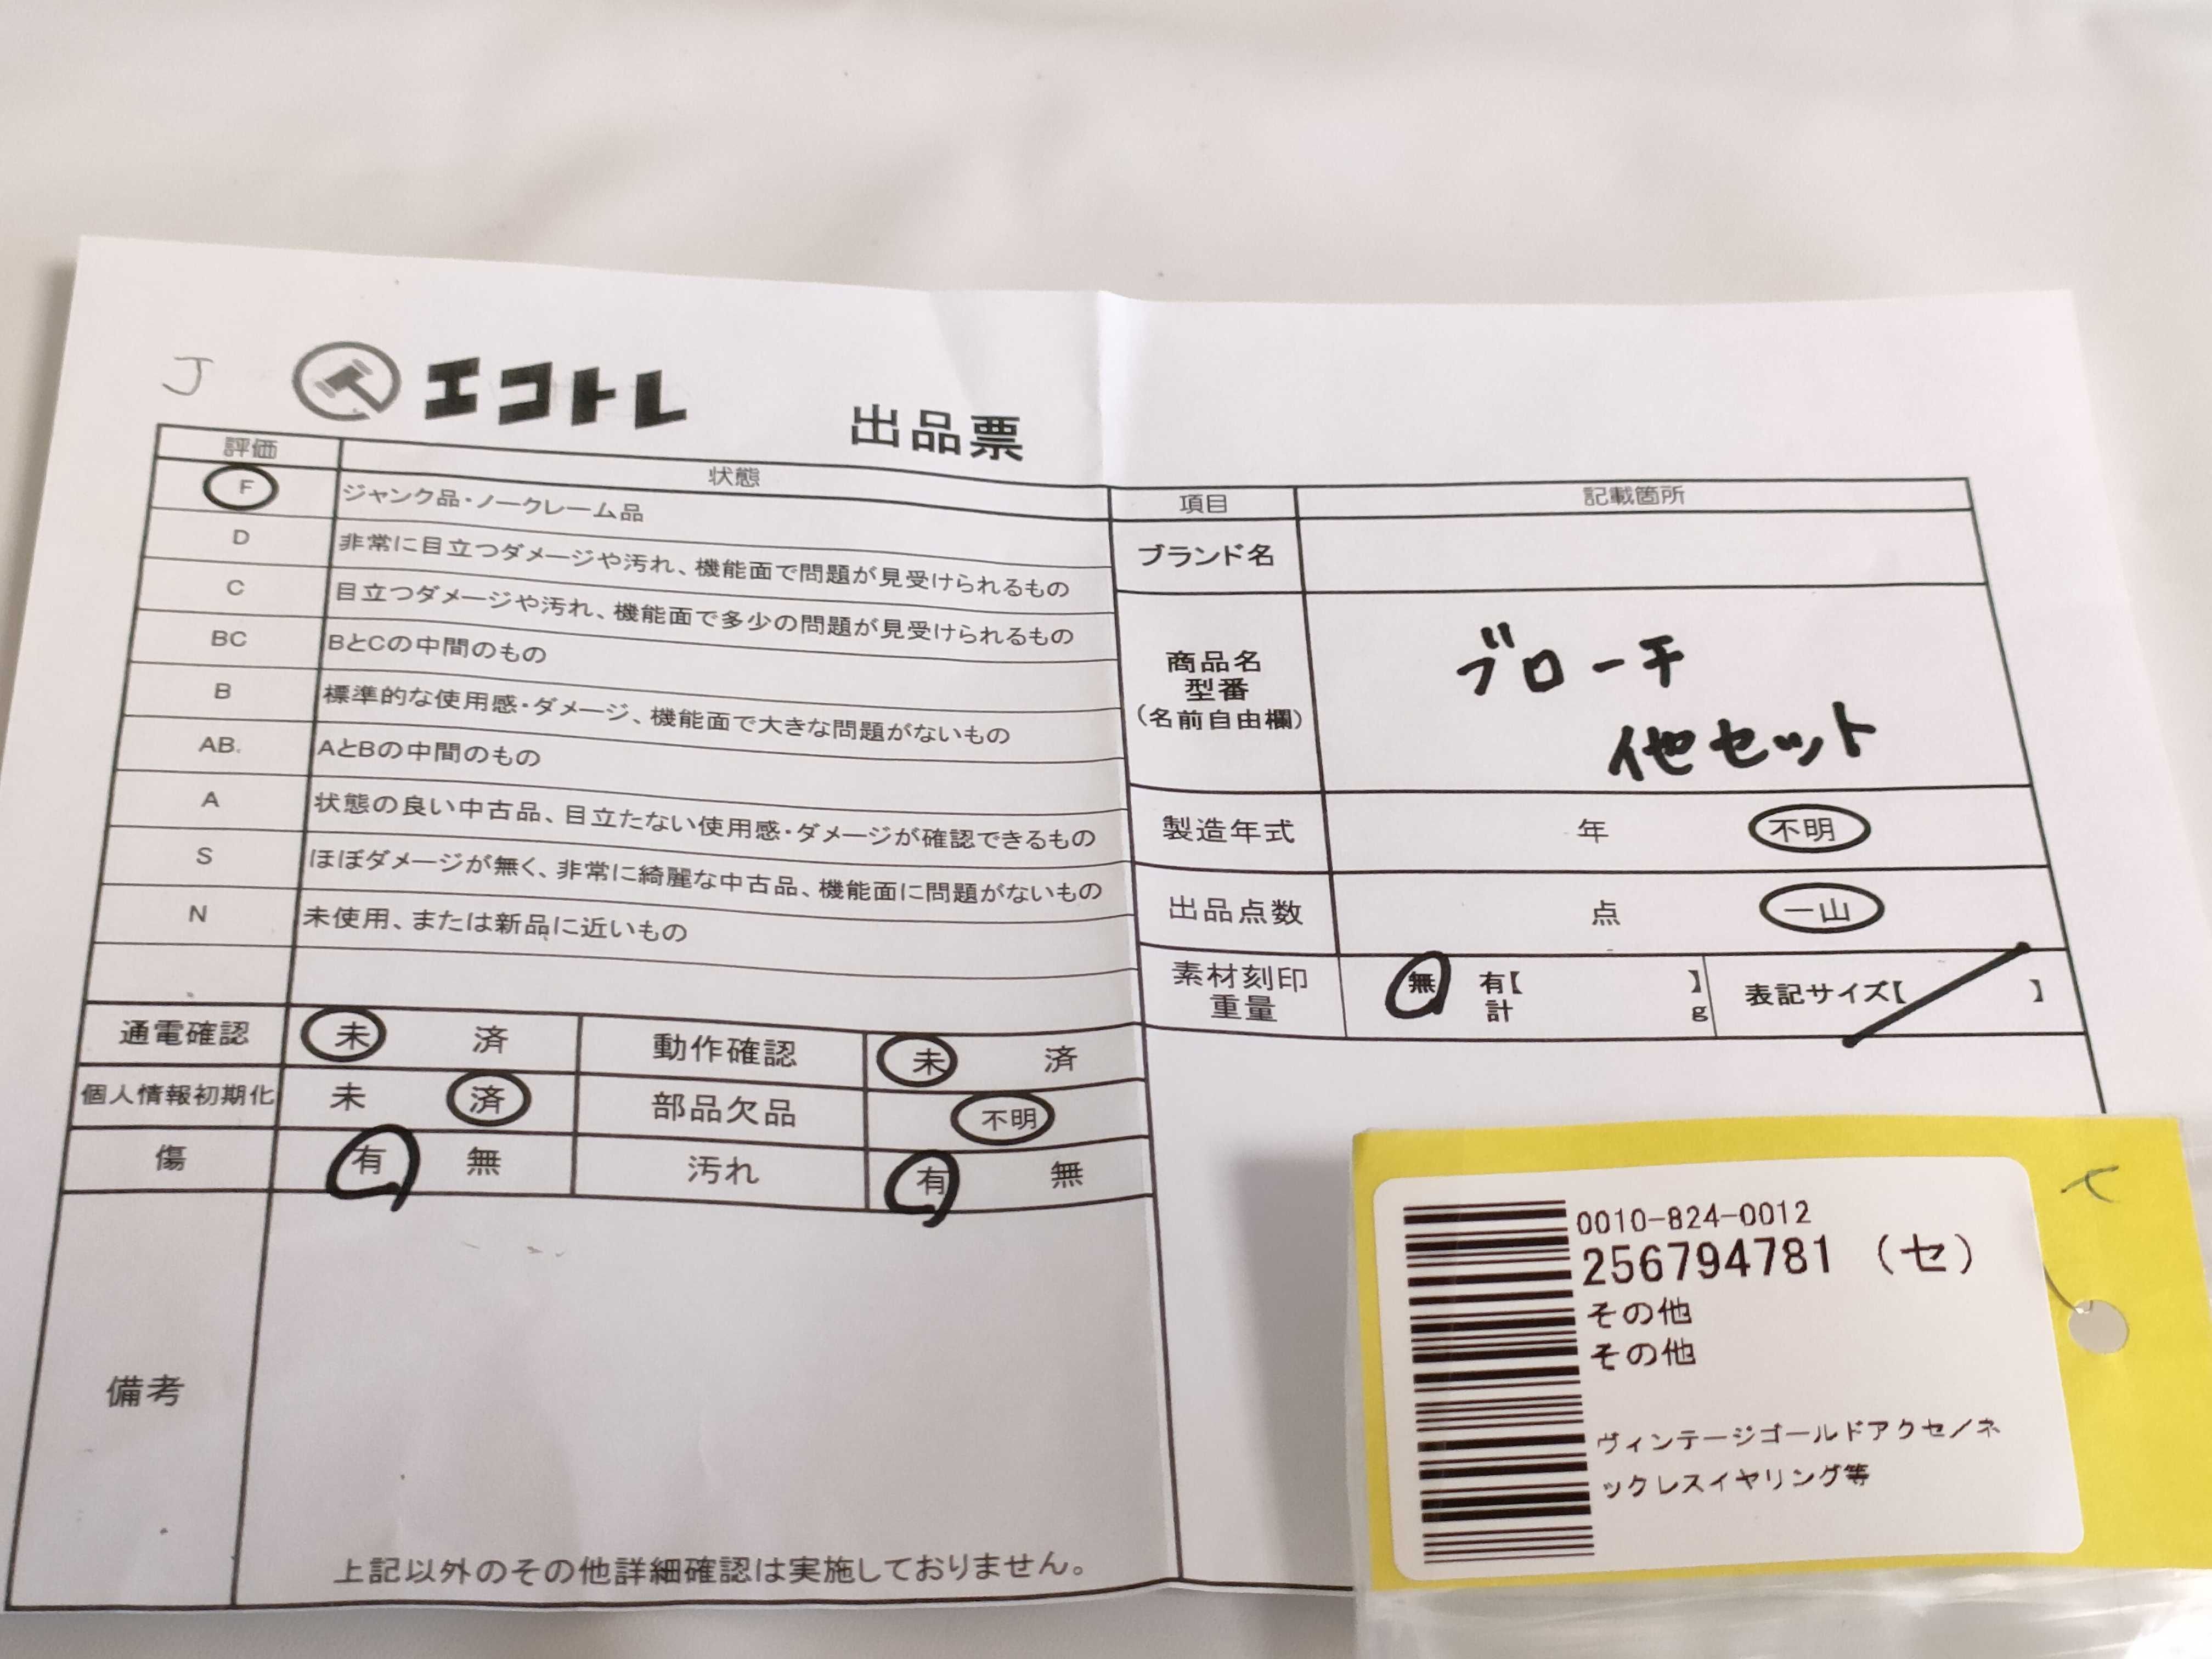 J
エコトレ
出品票
評価 状態
F ジャンク品・ノークレーム品
D 非常に目立つダメージや汚れ、機能面で問題が見受けられるもの
C 目立つダメージや汚れ、機能面で多少の問題が見受けられるもの
BC BとCの中間のもの
B 標準的な使用感・ダメージ、機能面で大きな問題がないもの
AB. AとBの中間のもの
A 状態の良い中古品、目立たない使用感・ダメージが確認できるもの
S ほぼダメージが無く、非常に綺麗な中古品、機能面に問題がないもの
N 未使用、または新品に近いもの
通電確認 未 済 動作確認 未 済
個人情報初期化 未 済 部品欠品 不明
傷 有 無 汚れ 有 無
備考
上記以外のその他詳細確認は実施しておりません。
項目 記載箇所
ブランド名
商品名
型番
(名前自由欄)
ブローチ
他セット
製造年式 年 不明
出品点数 点 一山
素材刻印
重量
無 有【 】
計 g
表記サイズ【 】
0010-824-0012
256794781 (セ)
その他
その他
ヴィンテージゴールドアクセ/ネ
ックレスイヤリング等